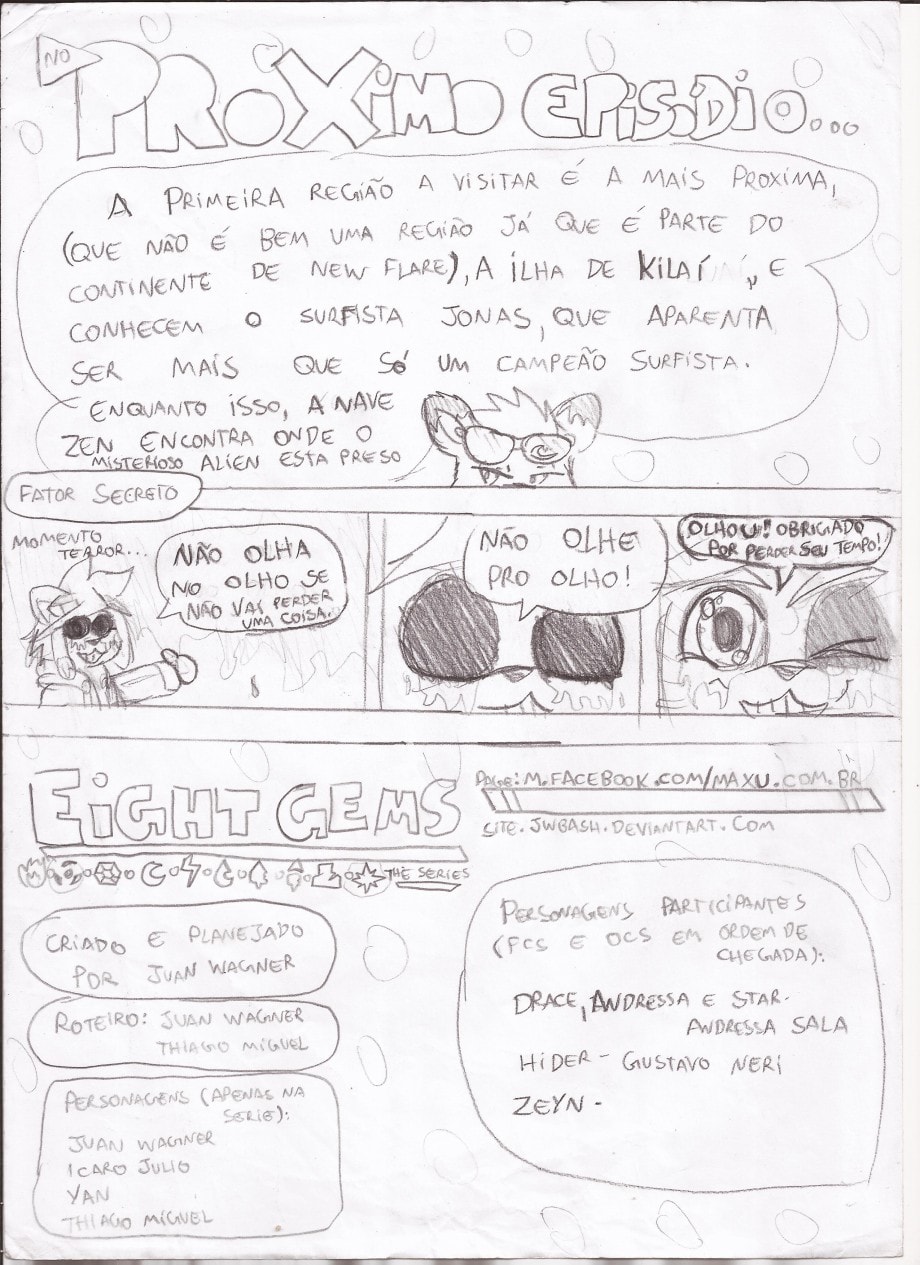 NO
PROXIMO EPISÓDIO...
A PRIMEIRA REGIÃO A VISITAR É A MAIS PROXIMA,
(QUE NÃO É BEM UMA REGIÃO JÁ QUE É PARTE DO
CONTINENTE DE NEW FLARE), A ILHA DE KILAÍ, E
CONHECEM O SURFISTA JONAS, QUE APARENTA
SER MAIS QUE SÓ UM CAMPEÃO SURFISTA.
ENQUANTO ISSO, A NAVE
ZEN ENCONTRA ONDE O
MISTERIOSO ALIEN ESTA PRESO
FATOR SECRETO
MOMENTO
TERROR...
NÃO OLHA
NO OLHO SE
NÃO VAI PERDER
UMA COISA.
NÃO OLHE
PRO OLHO!
OLHOU! OBRIGADO
POR PERDER SEU TEMPO!
EIGHT GEMS
THE SERIES
PAGE: M.FACEBOOK.COM/MAXU.COM.BR
SITE. JWBASH.DEVIANTART.COM
CRIADO E PLANEJADO
POR JUAN WAGNER
ROTEIRO: JUAN WAGNER
THIAGO MIGUEL
PERSONAGENS (APENAS NA
SERIE):
JUAN WAGNER
ICARO JULIO
YAN
THIAGO MIGUEL
PERSONAGENS PARTICIPANTES
(FCS E OCS EM ORDEM DE
CHEGADA):
DRACE, ANDRESSA E STAR-
ANDRESSA SALA
HIDER - GUSTAVO NERI
ZEYN -